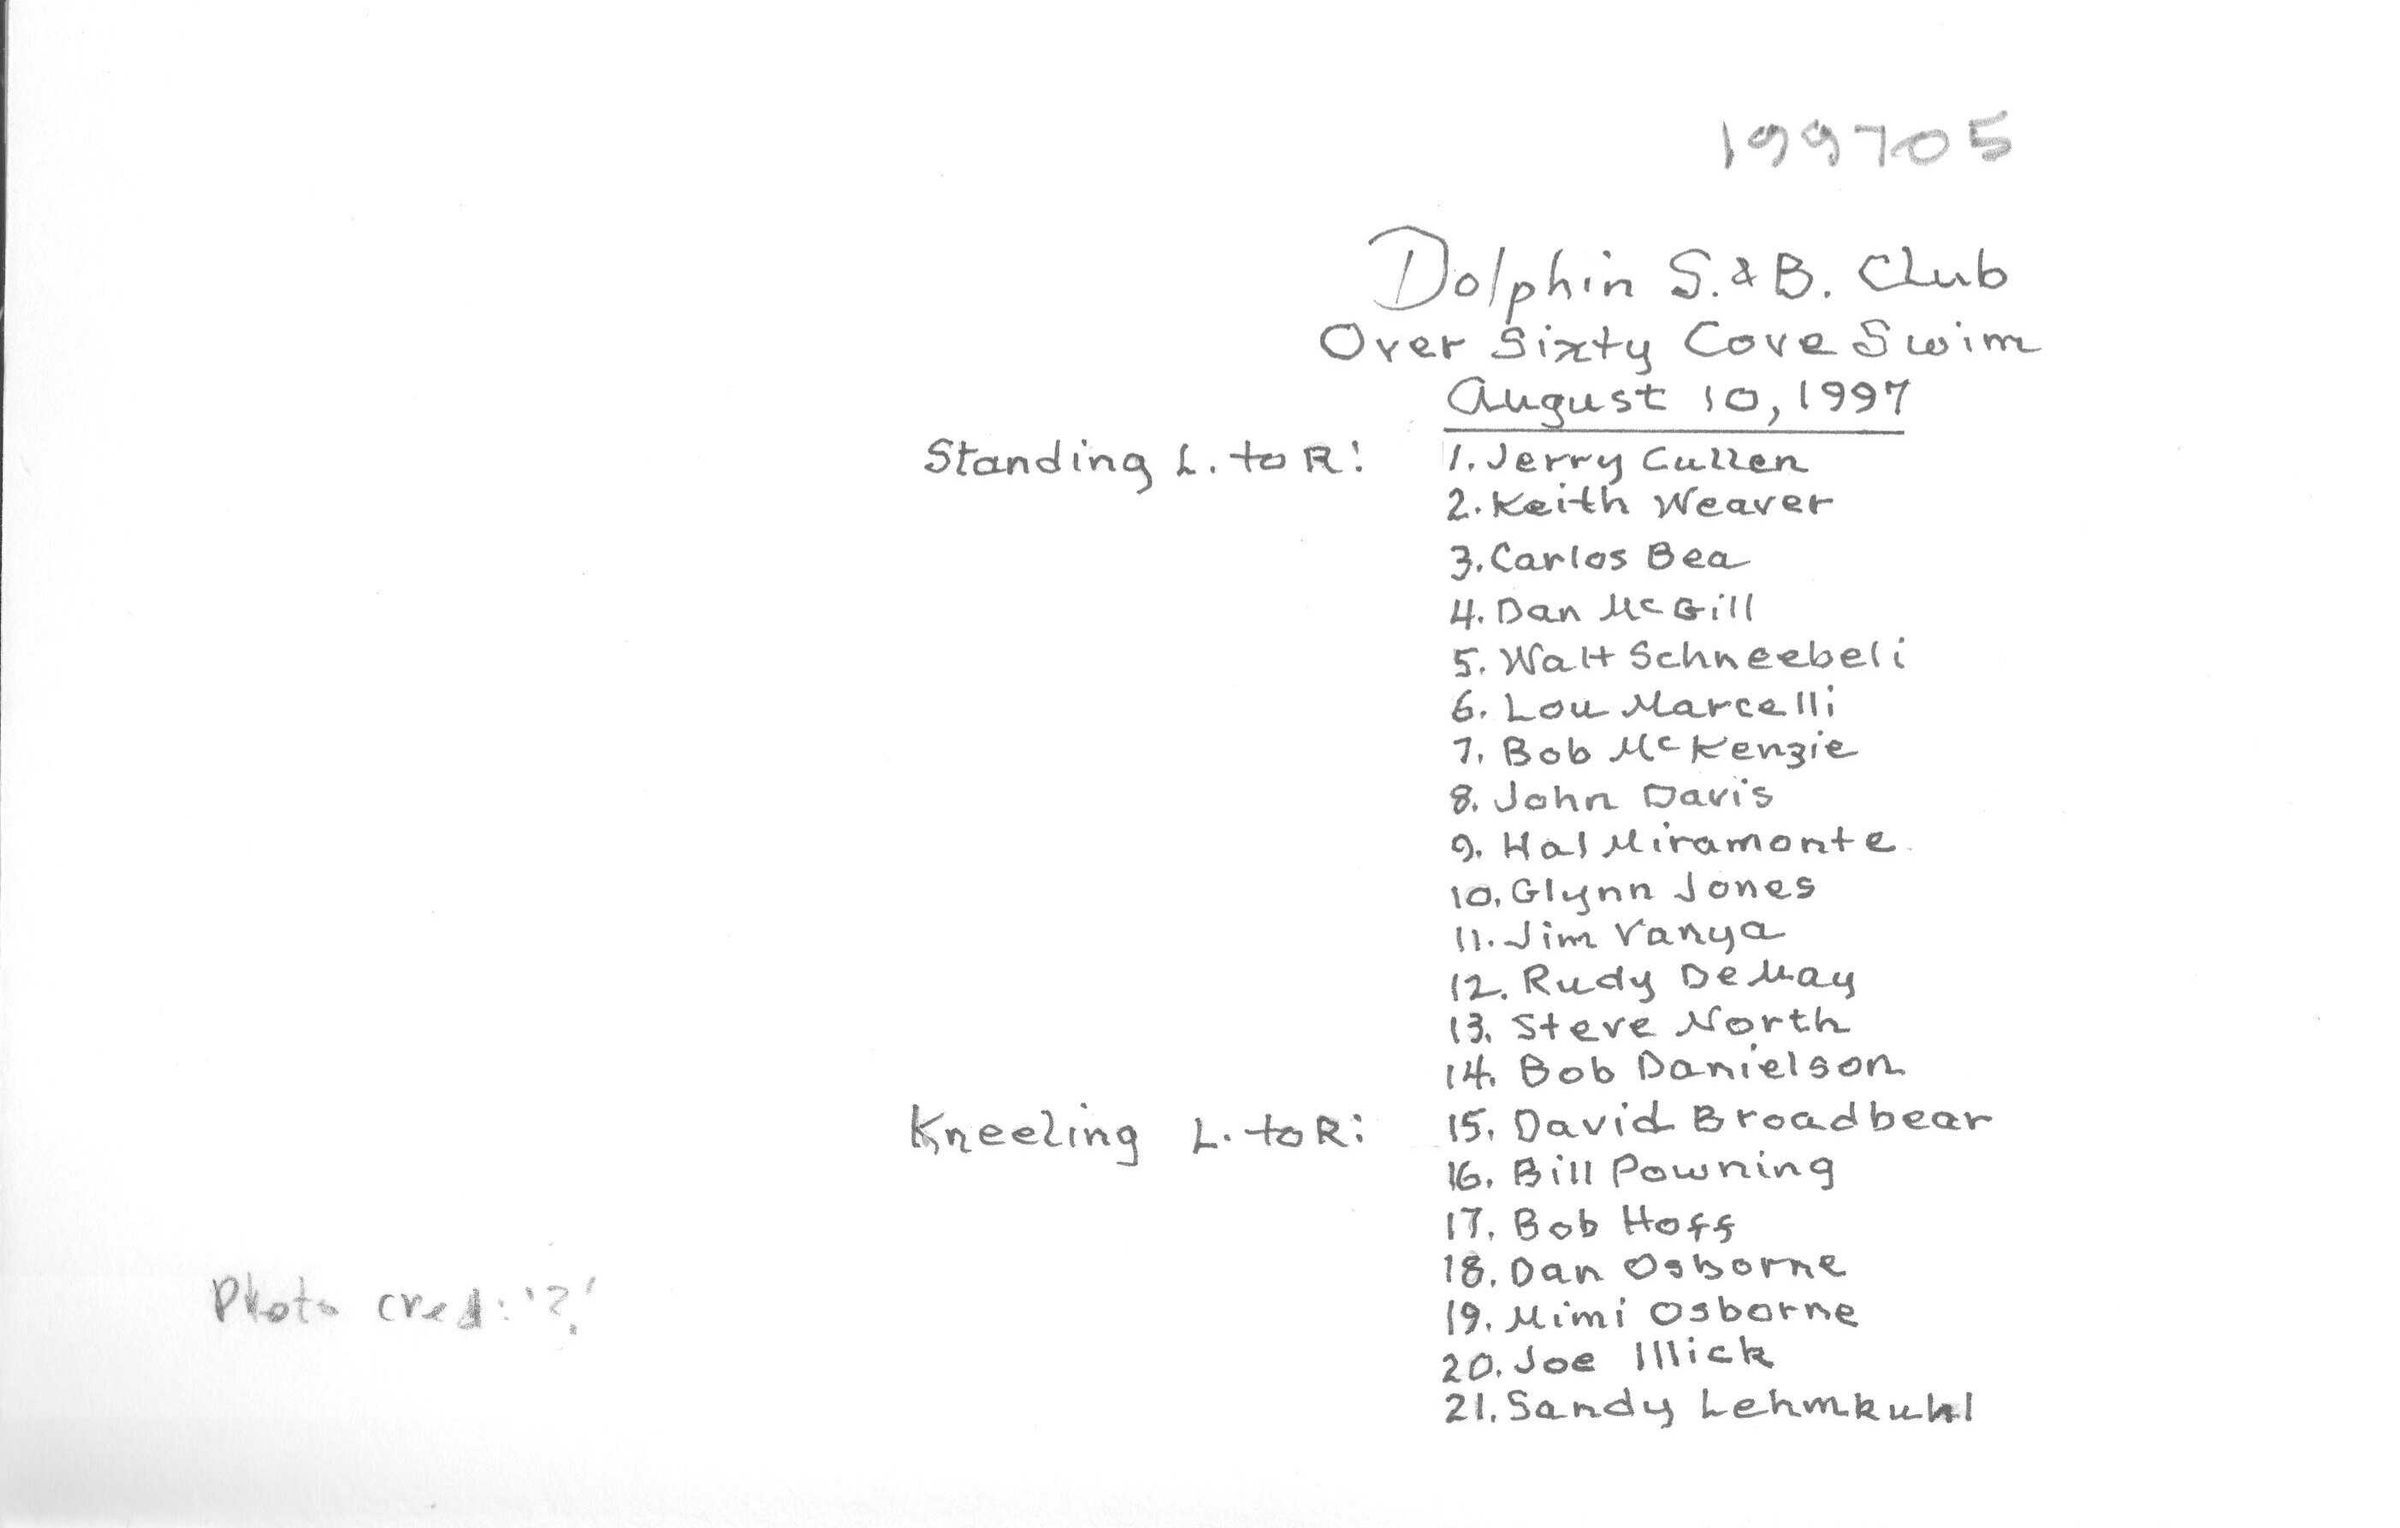 199705
Dolphin S. & B. Club
Over Sixty Cove Swim
August 10, 1997
Standing L. to R: 1. Jerry Cullen
2. Keith Weaver
3. Carlos Bea
4. Dan McGill
5. Walt Schneebeli
6. Lou Marcelli
7. Bob McKenzie
8. John Davis
9. Hal Miramonte
10. Glynn Jones
11. Jim Vanya
12. Rudy DeMay
13. Steve North
14. Bob Danielson
Kneeling L. to R: 15. David Broadbear
16. Bill Powning
17. Bob Hoff
18. Dan Osborne
19. Mimi Osborne
20. Joe Illick
21. Sandy Lehmkuhl
Photo cred: '?'